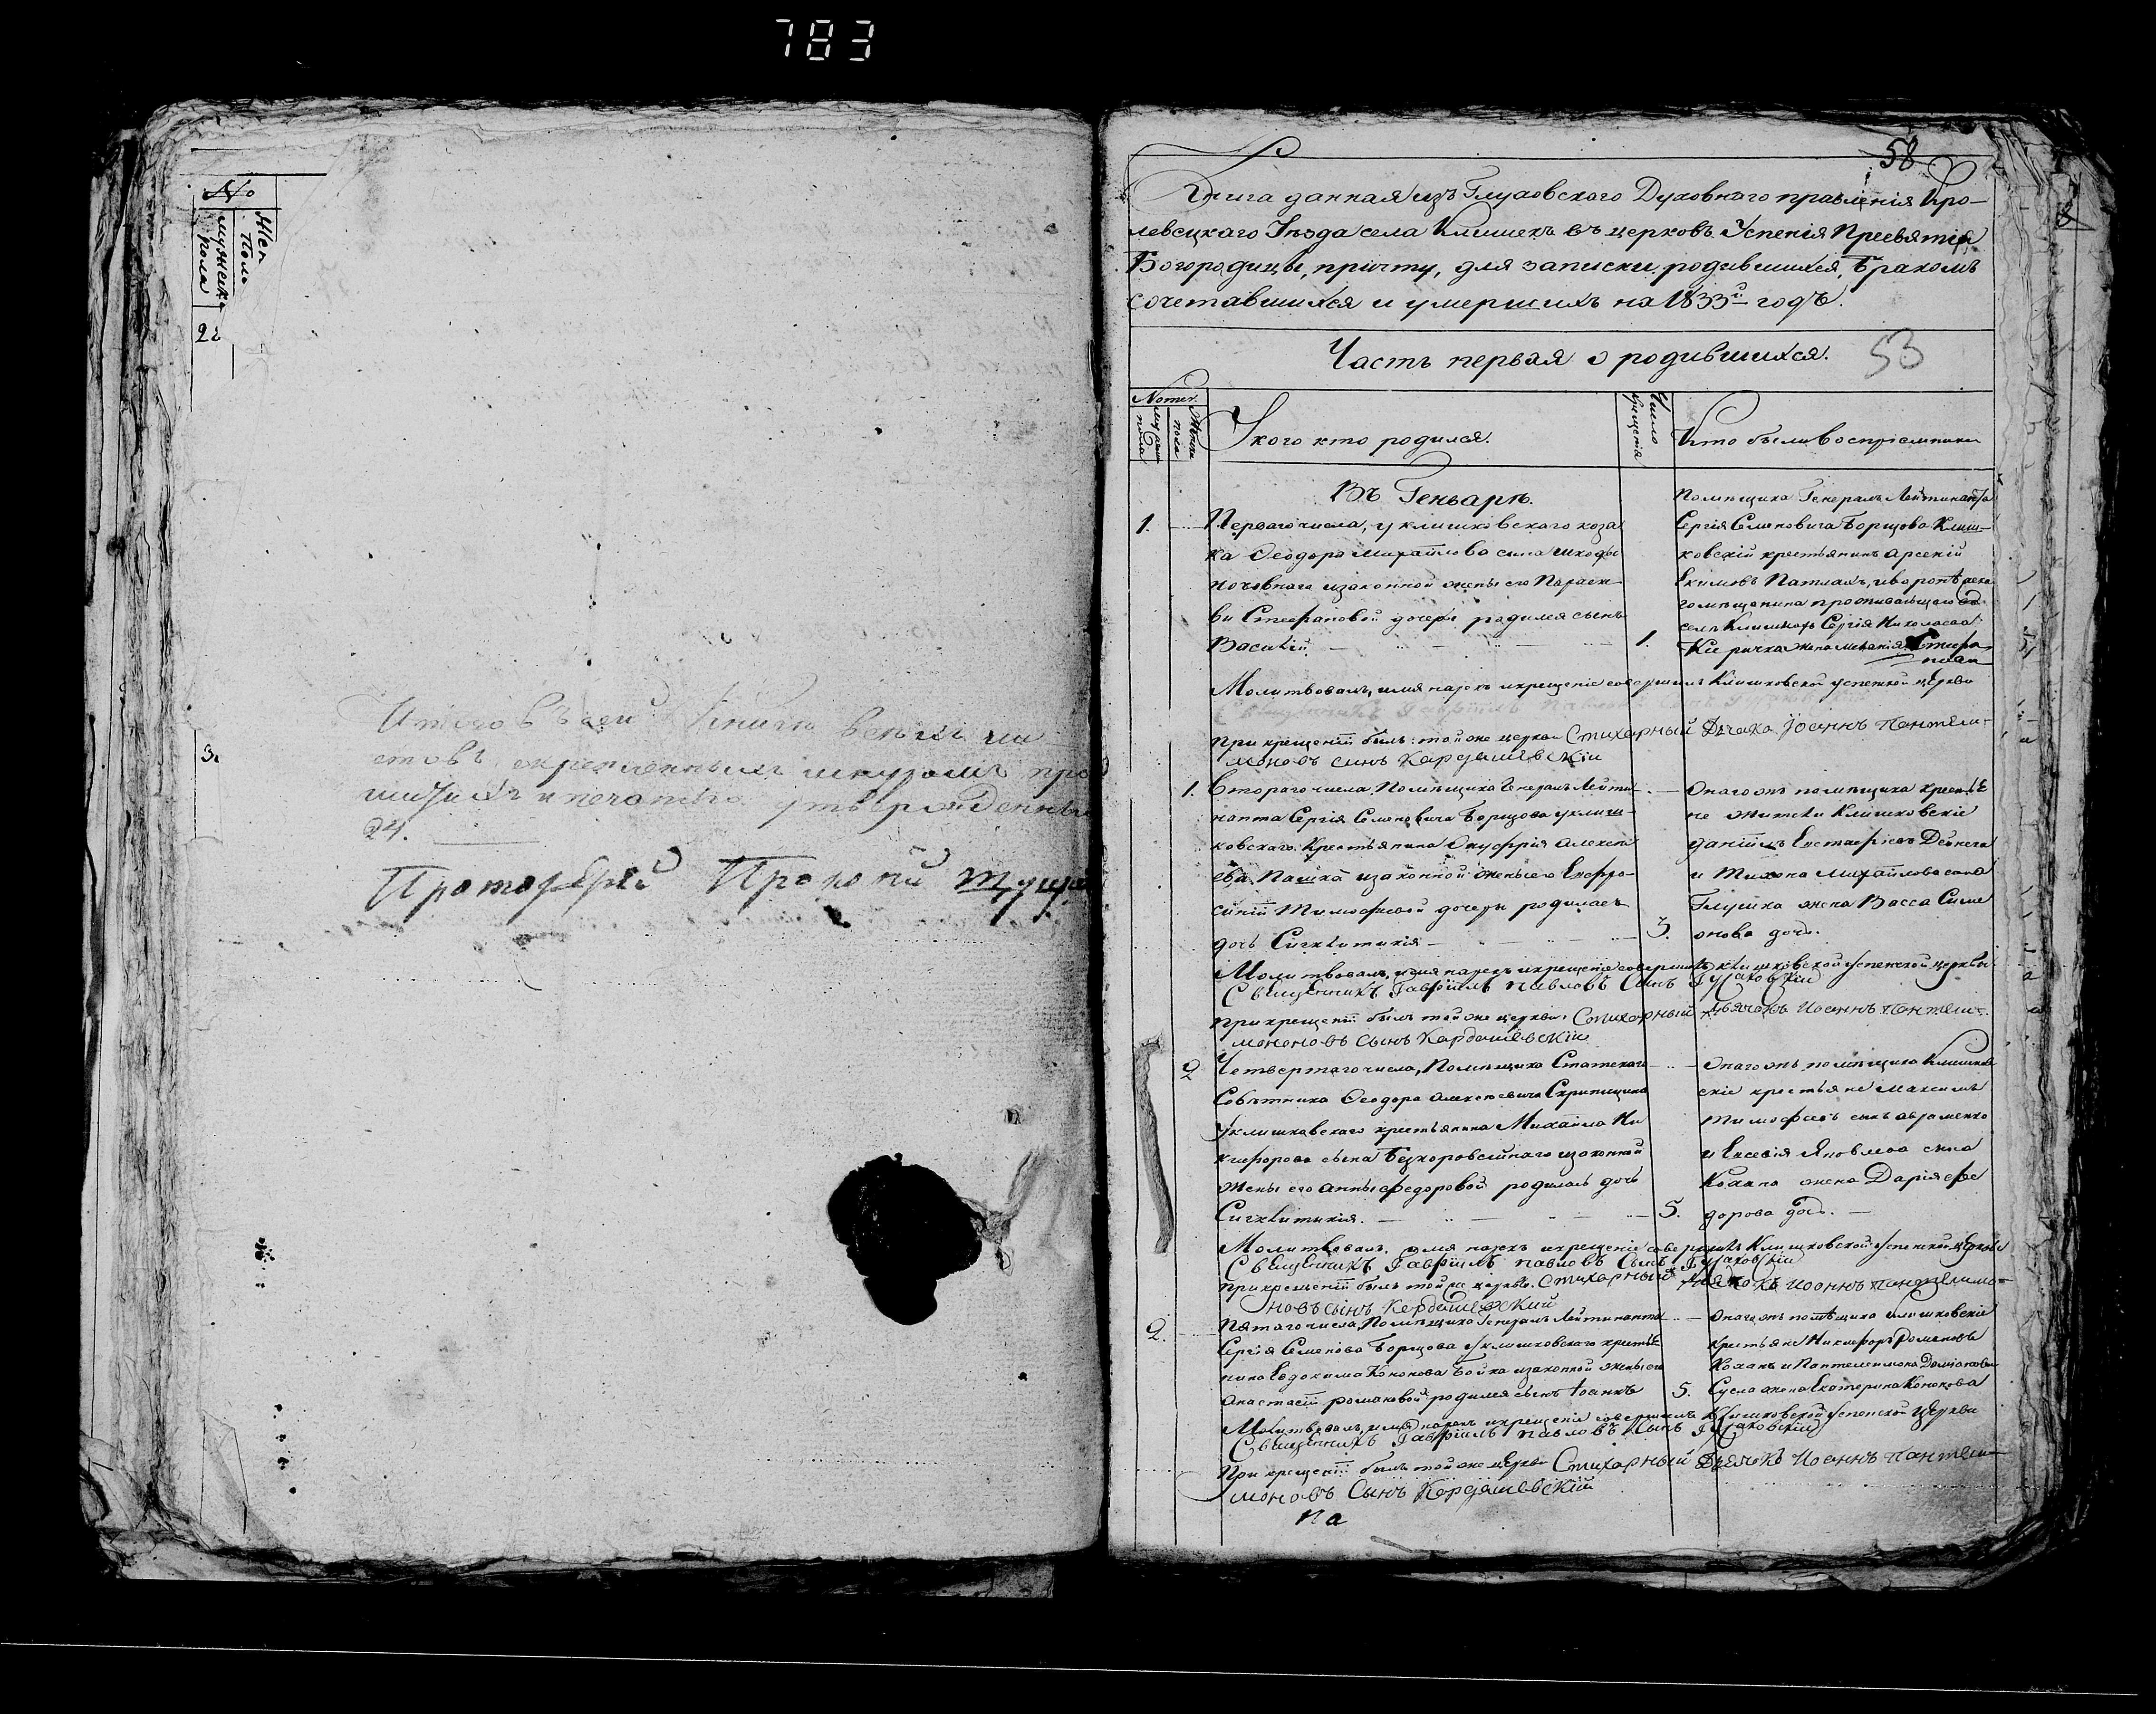 783
No
Жен. Полъ
мужска пола
22
Итого въ сей книгѣ всѣхъ ли
стовъ, скрепленныхъ шнуромъ про
шитыхъ и печатью утвержденны
24.
Протоіерей Прокопій
58
Книга данная изъ Глуховского Духовнаго правленія Кро-
левецкаго Уѣзда села Клишекъ въ церковъ Успенія Пресвятія
Богородицы, причту, для записки родившихся, бракомъ
сочетавшихся и умершихъ на 1833й годъ.
Часть первая о родившихся.
53
Номер.
мужска пола
Женска пола
У кого кто родился.
Число крещенія
Кто были воспріемники
Въ Генварѣ.
1.
Перваго числа, у клишковскаго коза
ка Феодора Михайлова сина
и законной жены его Параске-
ви Стефановой дочери родился сынъ
Василій
1.
Помѣщика Генералъ Лейтинанта
Сергія Семеновича Борщова Клиш-
ковскій крестьянинъ Арсеній
Екимовъ
селѣ Клишкахъ Сергія Николаева
жена Меланія Стефа-
нова
Молитвовалъ, имя нарекъ и крещеніе совершилъ Клишковской Успенской церкви
Священникъ Гавріилъ Павловъ Сынъ
при крещеніи былъ: той же церкви Стихарный Дьячокъ Іоаннъ Пантели-
моновъ синъ Кардашевскій
1.
Второго числа, Помѣщика Генералъ Лейти-
нанта Сергія Семеновича Борщова у клиш-
ковскаго Крестьянина Онуфрія Алексѣ
ева Пашка и законной жены его Евфро-
синіи Тимофѣевой дочери родилась
дочь Сигклитикія
3.
Оного жъ помѣщика крестья
не жители Клишковскіе
Даніилъ Евстафіевъ Дейнега
и Тихона Михайлова сина
Глушка жена Васса Симе
онова дочь.
Молитвовалъ, имя нарекъ и крещеніе совершилъ клишковской Успенской церкви
Священникъ Гавріилъ Павловъ Сынъ Гусаковскій
при крещеніи былъ той же церкви Стихарный дьячокъ Иоаннъ Пантели-
моновъ Сынъ Кардашевскій
2
Четвертаго числа, Помѣщика Статскаго
Совѣтника Феодора Алексѣевича Скрипицина
у клишковскаго крестьянина Михайла Ни
кифорова сына Безкоровайнаго и законной
жены его Анны Федоровой родилась дочь
Сигклитикія.
5.
Оного жъ помѣщика Клишков
скіе крестьяне Максимъ
Тимофѣевъ сынъ Авраменко
и Евсевія Яковлева сина
Кохана жена Дарія Фе
дорова дочь.
Молитвовалъ, имя нарекъ и крещеніе совершилъ Клишковской Успенской церкви
Священникъ Гавріилъ Павловъ Сынъ Гусаковскій
при крещеніи былъ той же церкви Стихарный дьячокъ Иоаннъ Пантелимо-
новъ сынъ Кардашевский
2.
Пятаго числа, Помѣщика Генералъ Лейтинанта
Сергія Семенова Борщова у клишковскаго крестья
нина Евдокима Кононова Бойка и законной жены его
Анастасіи Романовой родился сынъ Іоаннъ
5.
Оного жъ помѣщика клишковскіе
крестьяне Никифоръ Романовъ
Коханъ и Пантелеимона Доміанова
Сусла жена Екатерина Кононова
Молитвовалъ, имя нарекъ и крещеніе совершилъ Клишковской Успенской Церкви
Священникъ Гавріилъ Павловъ Сынъ Гусаковскій
При крещеніи былъ той же церкви Стихарный Дьячокъ Иоаннъ Пантели-
моновъ Сынъ Кардашевскій
на